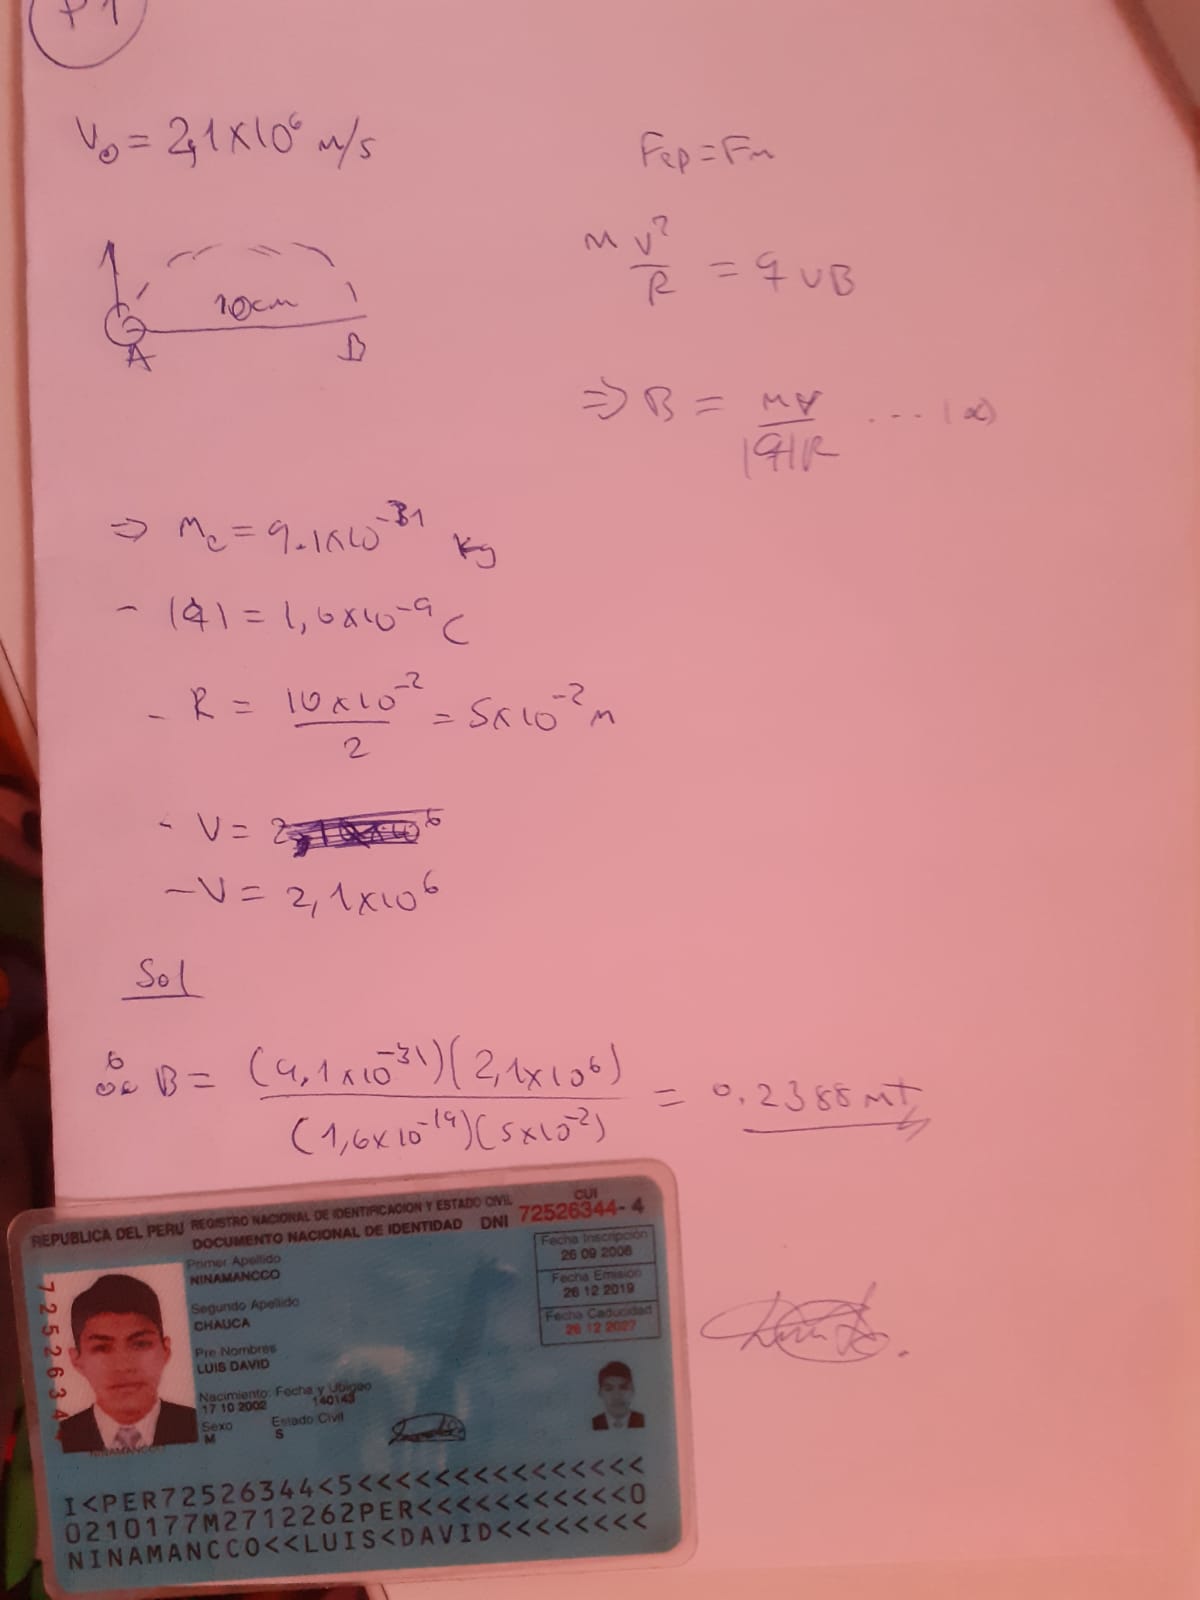 P1
V₀ = 2,1x10⁶ m/s
Fcp = Fm
m V²/R = q v B
10cm
A
B
⇒ B = mv/|q|R ... (α)
⇒ Me = 9.1x10⁻³¹ kg
- |q| = 1,6x10⁻⁹ C
- R = 10x10⁻²/2 = 5x10⁻² m
- V = 2,1x10⁶
- V = 2,1x10⁶
Sol
B = (9,1x10⁻³¹)(2,1x10⁶)/(1,6x10⁻¹⁹)(5x10⁻²) = 0.2388 mT
REPUBLICA DEL PERU REGISTRO NACIONAL DE IDENTIFICACION Y ESTADO CIVIL
DOCUMENTO NACIONAL DE IDENTIDAD DNI
CUI
72526344-4
Primer Apellido
NINAMANCCO
Segundo Apellido
CHAUCA
Pre Nombres
LUIS DAVID
Nacimiento: Fecha y Ubigeo
17 10 2002 140143
Sexo Estado Civil
M S
Fecha Inscripción
26 09 2006
Fecha Emisión
26 12 2019
Fecha Caducidad
26 12 2027
72526344
NINAMANCCO
I<PER72526344<5<<<<<<<<<<<<<<<
0210177M2712262PER<<<<<<<<<<<0
NINAMANCCO<<LUIS<DAVID<<<<<<<<